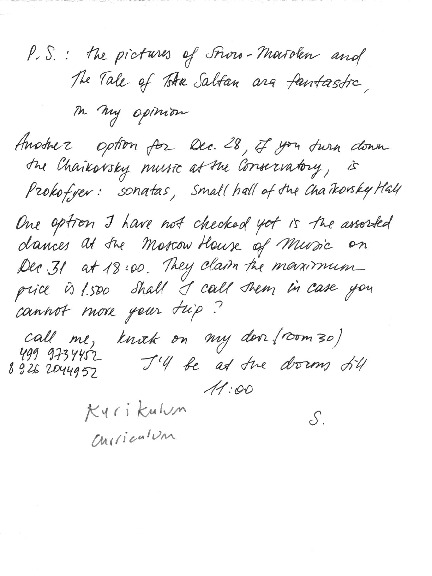 P.S.: the pictures of Snow-Maiden and
The Tale of Tsar Saltan are fantastic,
in my opinion
Another option for Dec. 28, if you turn down
the Chaikovsky music at the Conservatory, is
Prokofyev: sonatas, small hall of the Chaikovsky Hall
One option I have not checked yet is the assorted
dances at the Moscow House of Music on
Dec. 31 at 18:00. They claim the maximum
price is 1.500 Shall I call them in case you
cannot move your trip?
call me, knock on my door (room 30)
499 9734452
8 926 2044952 I'll be at the dorms till
11:00
Kurikulum
curriculum
S.